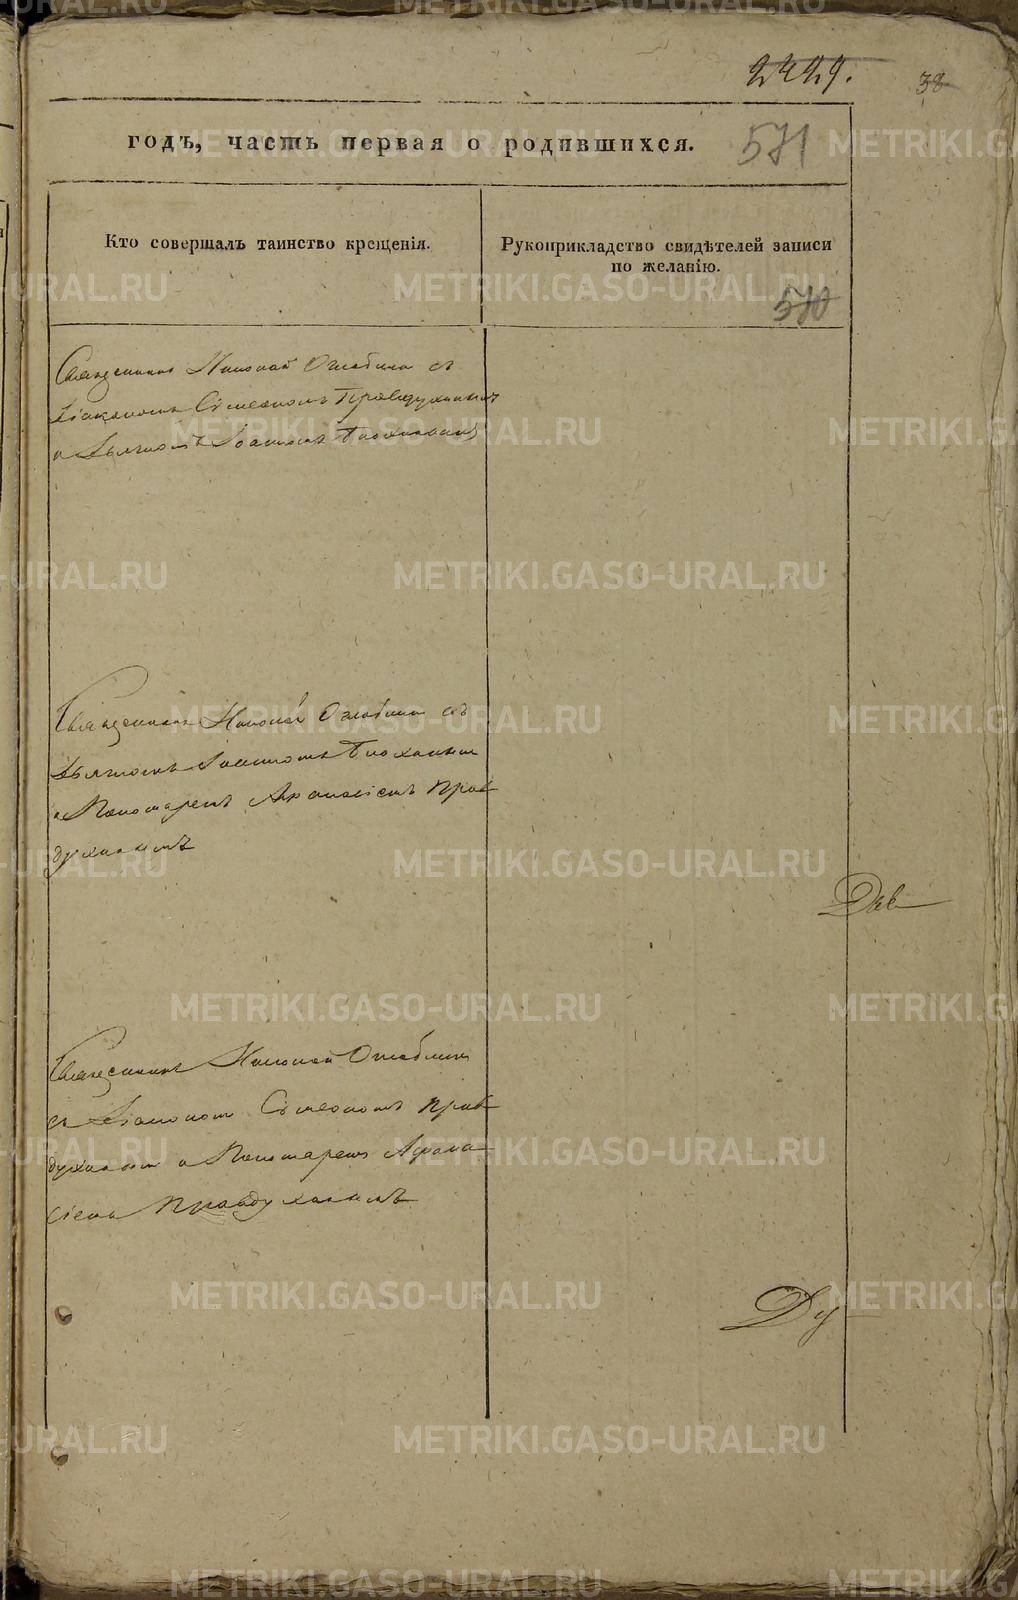 2429.
38
годъ, часть первая о родившихся.
571
Кто совершалъ таинство крещенія.
Рукоприкладство свидѣтелей записи
по желанію.
570
Священникъ Николай Оглоблинъ съ
Діакономъ Сѵмеономъ Правдухинымъ
и Дьячкомъ Іоанномъ
Священникъ Николай Оглоблинъ съ
Дьячкомъ Іоанномъ
и Пономаремъ Аѳанасіемъ Прав
духинымъ
Дав
Священникъ Николай Оглоблинъ
съ Діакономъ Сѵмеономъ Прав
духинымъ и Пономаремъ Аѳана
сіемъ Правдухинымъ
Ду
METRIKI.GASO-URAL.RU